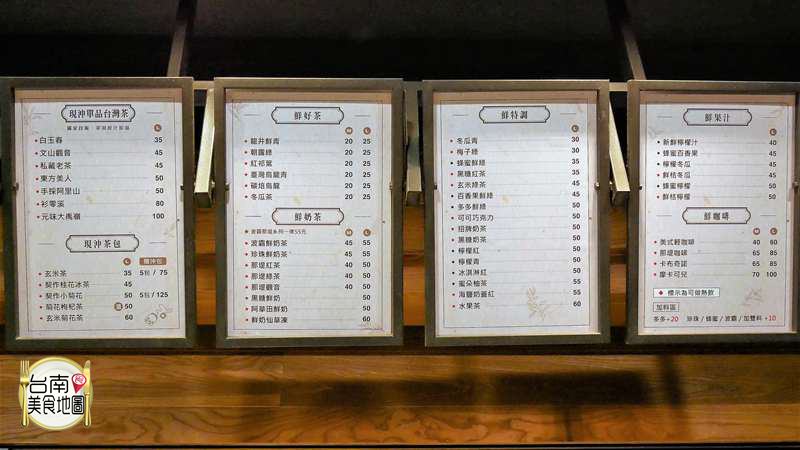 現沖單品台灣茶
L
白玉春 35
文山觀音 45
私藏老茶 45
東方美人 50
手採阿里山 50
杉零溪 80
元味大禹嶺 100
現沖茶包
L 隨沖包
玄米茶 35 5包 / 75
契作桂花冰茶 45
契作小菊花 50 5包 / 125
菊花枸杞茶 50
玄米菊花茶 60
鮮好茶
M L
龍井鮮青 20 25
朝露綠 20 25
紅袑葉 20 25
臺灣烏龍青 20 25
碳焙烏龍 20 25
冬瓜茶 20 25
鮮奶茶
M L
波霸鮮奶茶 45 55
珍珠鮮奶茶 45 55
那堤紅茶 40 50
那堤綠茶 40 50
那堤觀音 40 50
黑糖鮮奶 50
阿華田鮮奶 50
鮮奶仙草凍 60
鮮特調
L
冬瓜青 30
梅子綠 30
蜂蜜鮮綠 35
黑糖紅茶 35
玄米綠茶 45
百香果鮮綠 45
多多鮮綠 50
可可巧克力 50
招牌奶茶 50
黑糖奶茶 50
檸檬紅 50
檸檬青 50
冰淇淋紅 50
蜜朵柚茶 55
海鹽奶蓋紅 55
水果茶 60
鮮果汁
L
新鮮檸檬汁 40
蜂蜜百香果 45
檸檬冬瓜 45
鮮桔冬瓜 45
蜂蜜檸檬 50
鮮桔檸檬 50
鮮咖啡
M L
美式輕咖啡 40 60
那堤咖啡 65 85
卡布奇諾 65 85
摩卡可兒 70 100
標示為可做熱飲
加料區
多多+20 珍珠 / 蜂蜜 / 波霸 / 加雙料 +10
台南
美食地圖